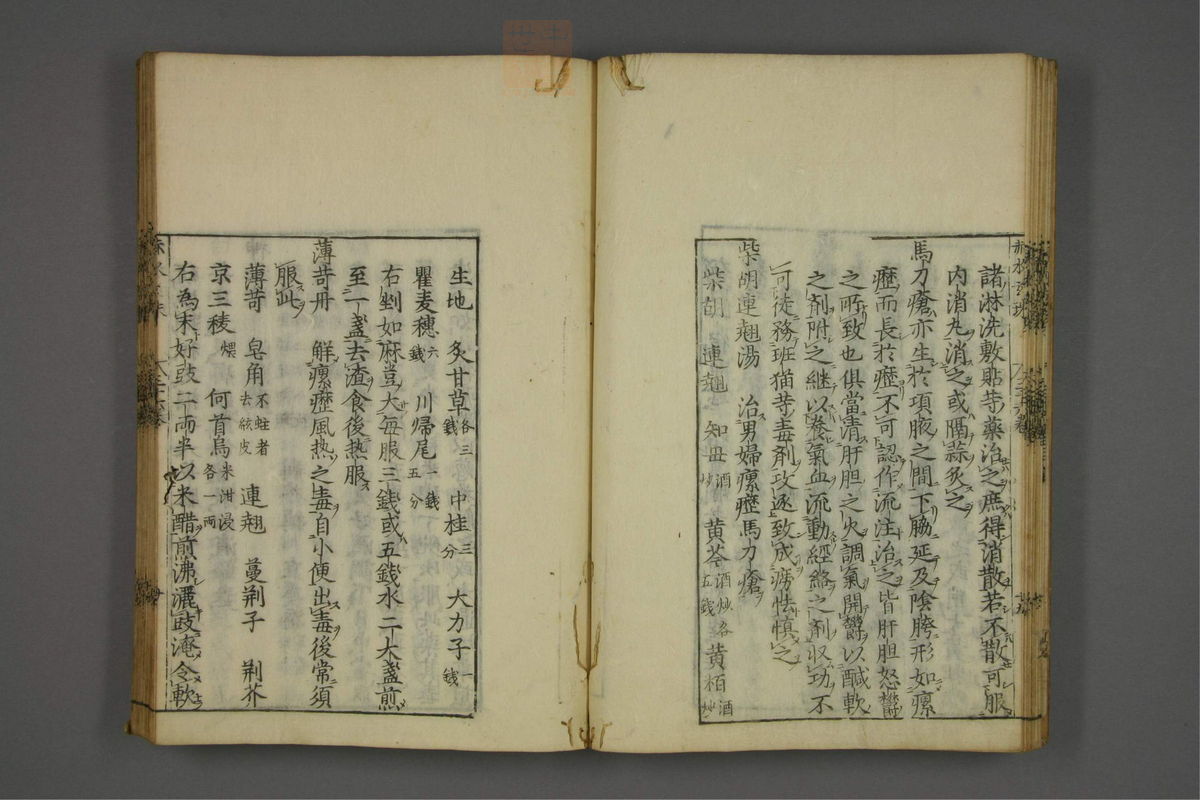 諸淋洗敷貼等藥治之庶得消散若不散可服
内消丸消之或隔蒜炙之
馬刀瘡亦生於項腋之間下脇延及陰胯形如瘰
癧而長於癧不可認作流注治之皆肝胆怒欝
之所致也俱當清肝胆之火調氣開欝以醎軟
之剤附之継以養氣血流動經絡之剤収功不
可徒務班猫等毒剤攻逐致成癆怯慎之
柴胡連翹湯 治男婦瘰癧馬刀瘡
柴胡 連翹 知母酒炒 黄芩酒炒各五錢 黄栢酒炒
生地 炙甘草各三錢 中桂三分 大力子一錢
瞿麦穗六錢 川帰尾一錢五分
右剉如麻豆大毎服三錢或五錢水二大盞煎
至一盞去渣食後热服
薄苛丹 觧瘰癧風热之毒自小便出毒後常須
服此
薄苛 皂角不蛀者去絃皮 連翹 蔓荆子 荆芥
京三稜煨 何首烏米泔浸各一兩
右為末好豉二兩半以米醋煎沸灑豉淹令軟